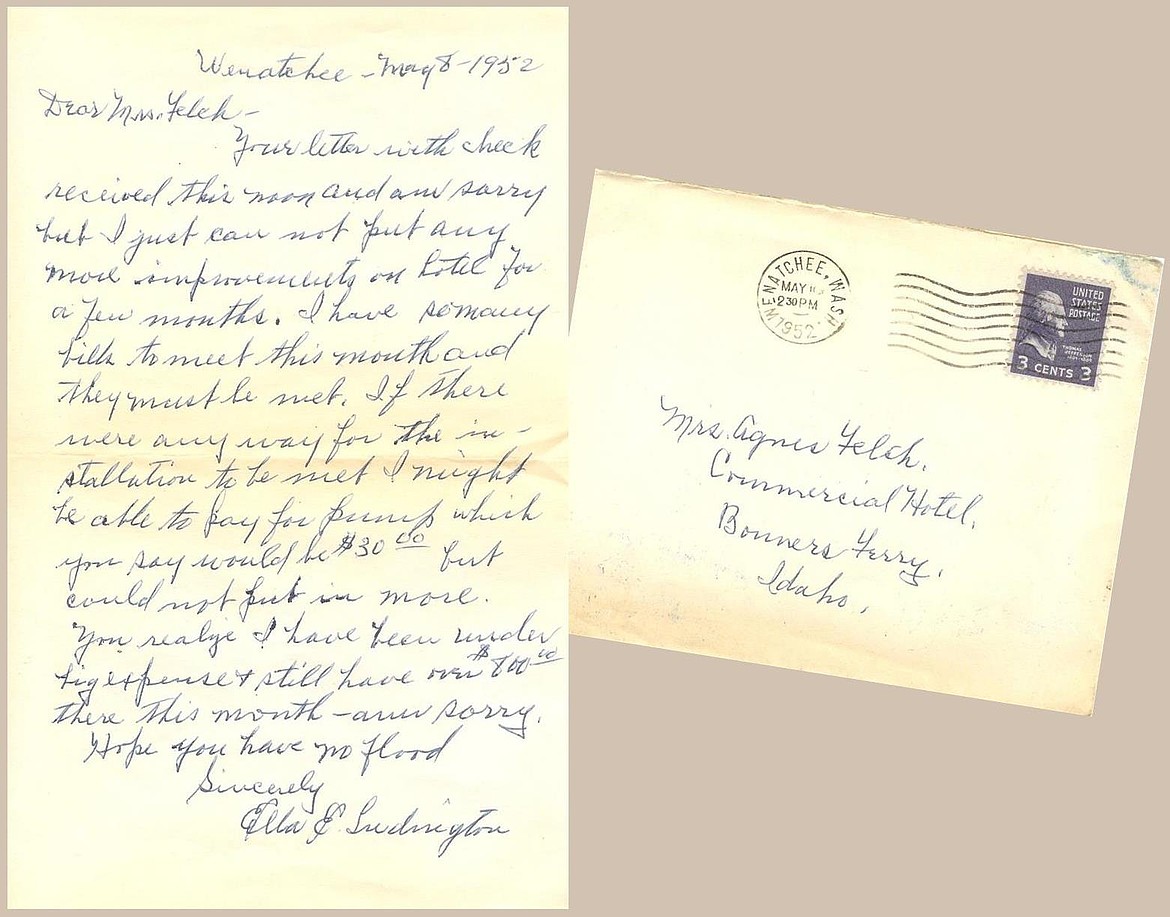 Wenatchee - May 8 - 1952
Dear Mrs. Felch -
Your letter with check
received this noon and am sorry
but I just can not put any
more improvements on hotel for
a few months. I have so many
bills to meet this month and
they must be met. If there
were any way for the in -
stallation to be met I might
be able to pay for pump which
you say would be $30 00 but
could not put in more.
You realize I have been under
big expense & still have over $800 00
there this month - am sorry.
Hope you have no flood
Sincerely
Ella E. Ludington
WENATCHEE, WASH
MAY
2 30 PM
1952
UNITED
STATES
POSTAGE
THOMAS
JEFFERSON
3 CENTS 3
Mrs. Agnes Felch.
Commercial Hotel.
Bonners Ferry.
Idaho.